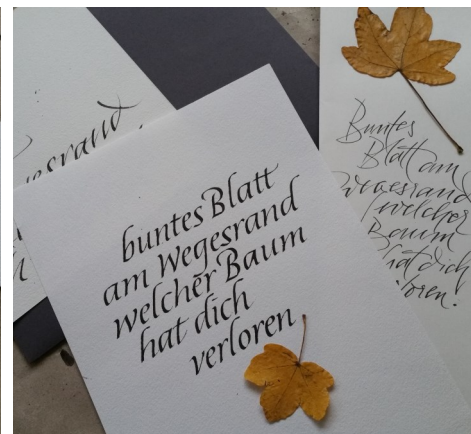 gesrand
buntes Blatt
am Wegesrand
welcher Baum
hat dich
verloren
Buntes
Blatt am
Wegesrand
welcher
Baum
hat dich
loren!